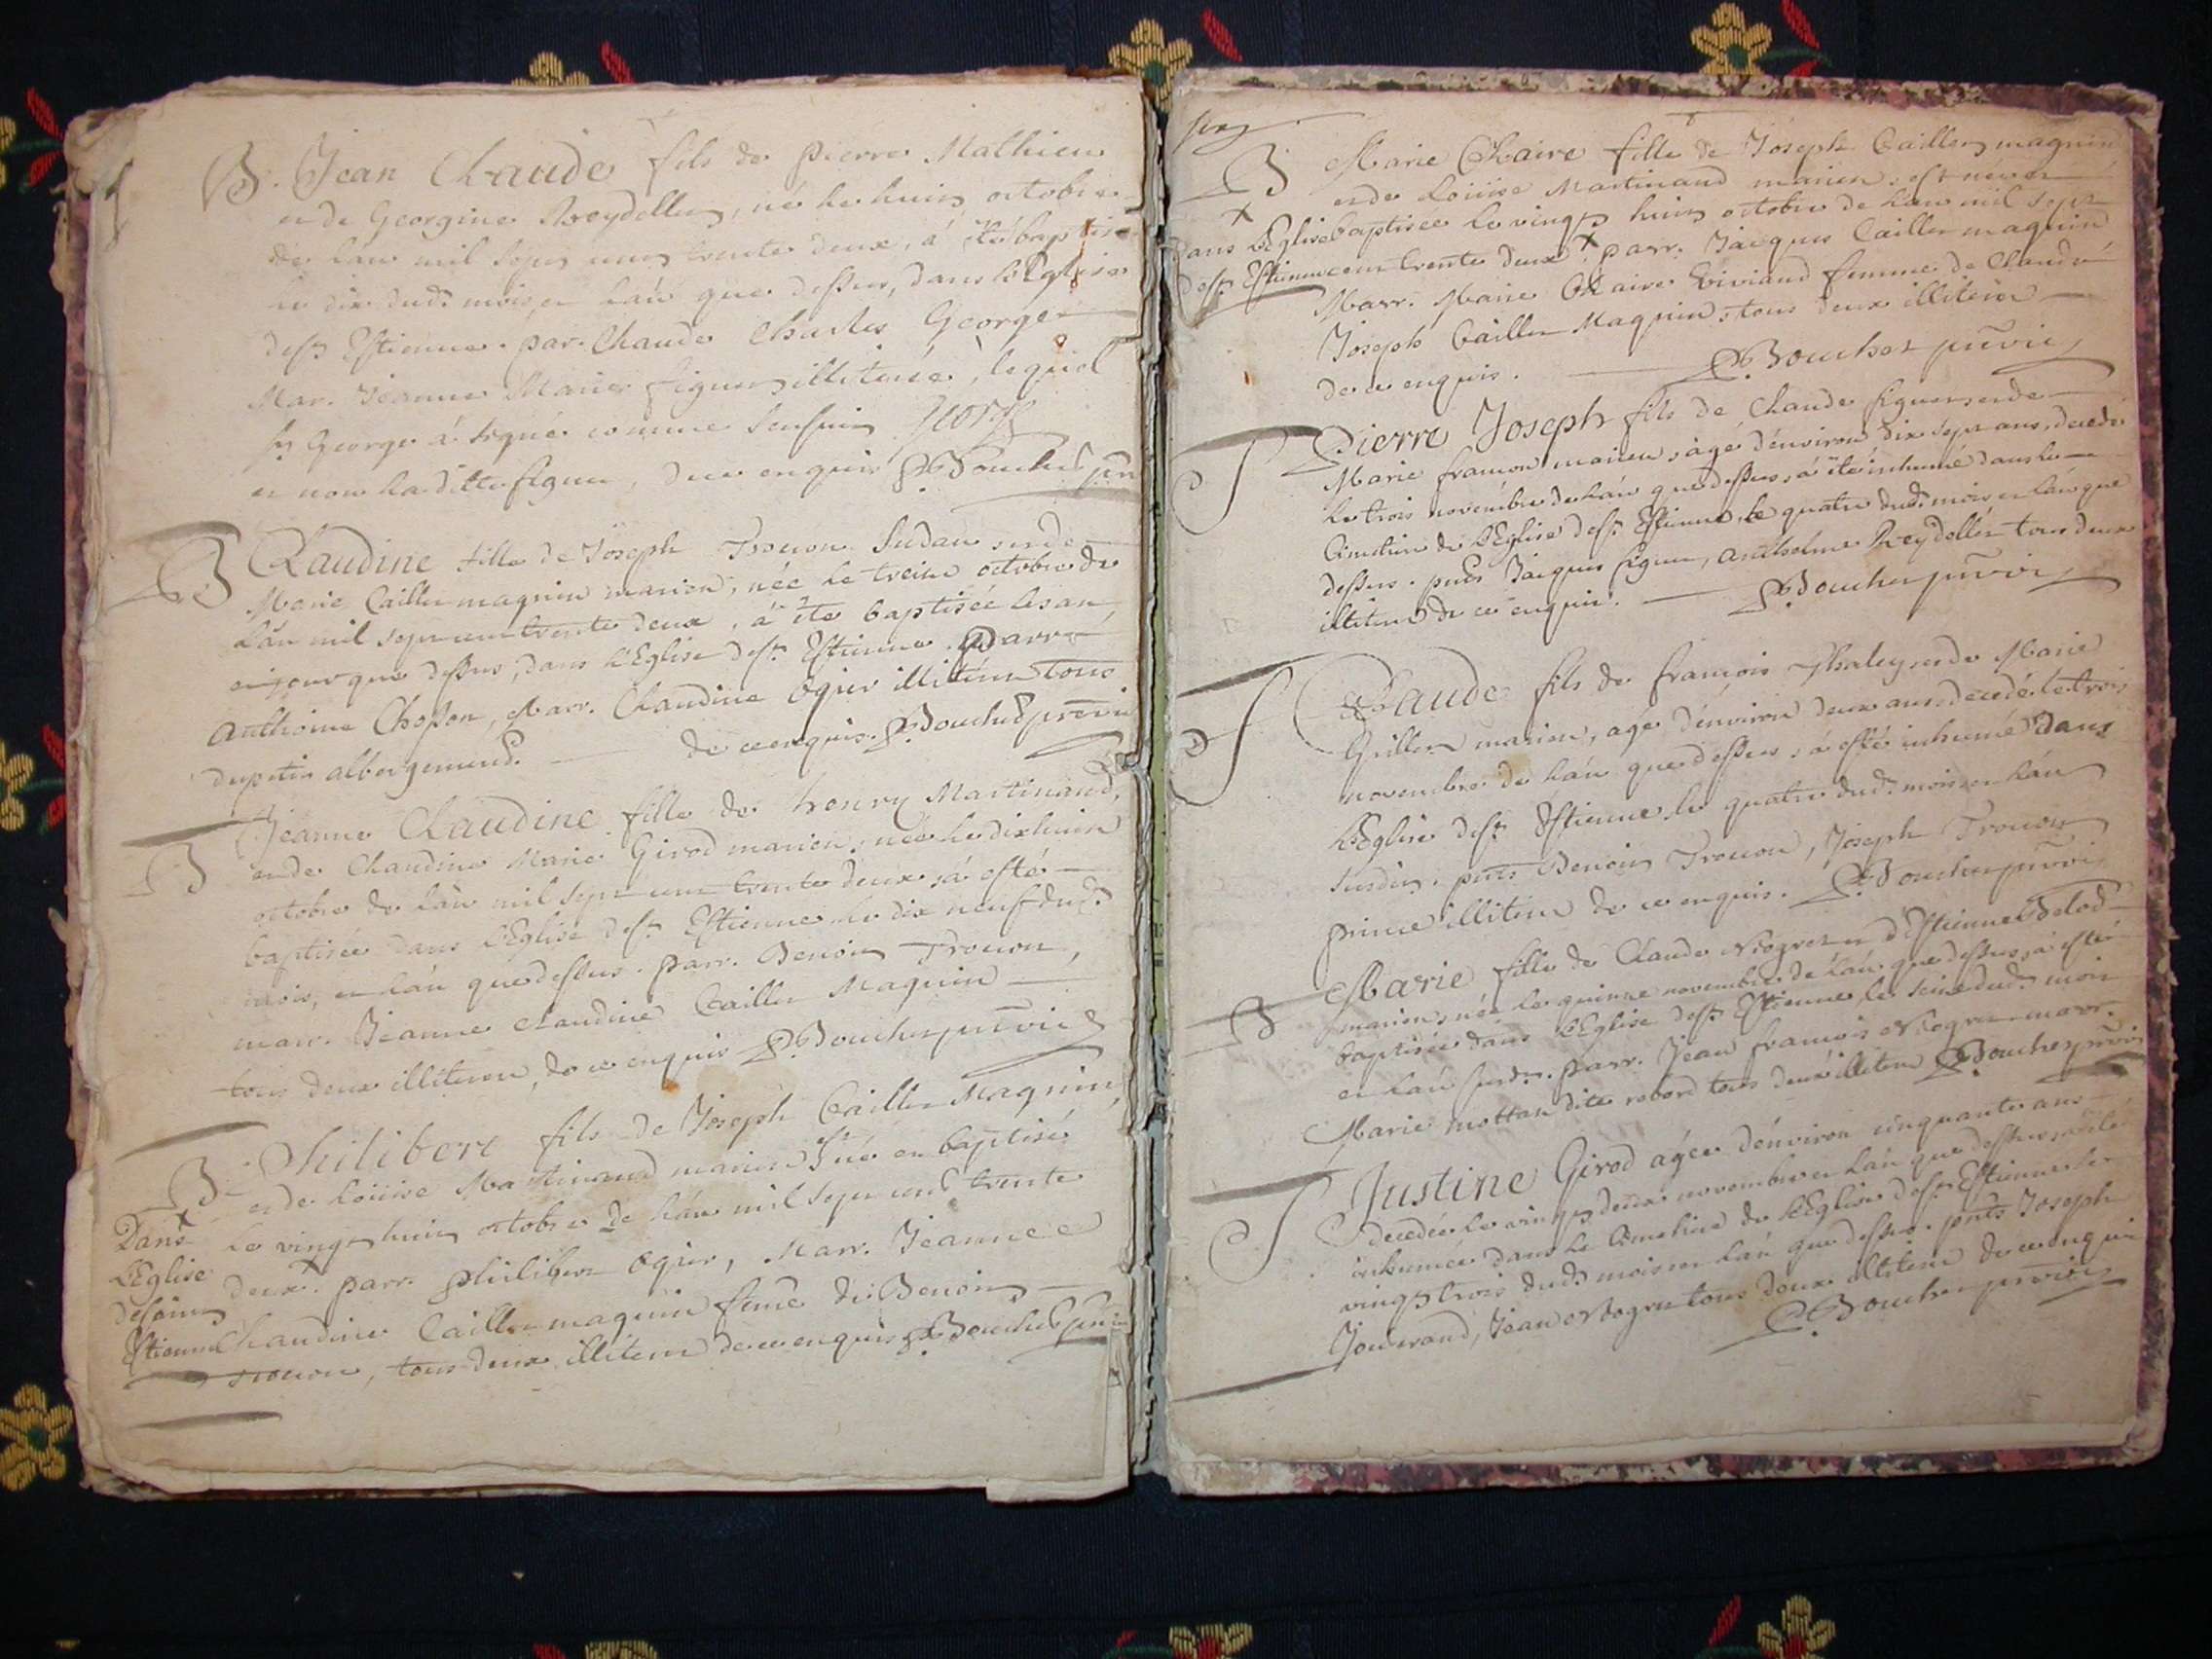 B. Jean Claude fils de pierre Mathieu
et de Georgine Reydellet, né le huit octobre
de l'an mil sept cent trente deux, a été baptisé
le dix dud. mois, et l'an que dessus, dans l'Eglise
de St Estienne. par. Claude Charles George
Mar. Jeanne Marie figuet illiterée, lequel
Sr George à signé comme s'ensuit George
et non la ditte figuet, de ce enquis P. Bouchet
B Claudine fille de Joseph Trouon Sudan et de
Marie Caillet magnin mariéz, née le treize octobre de
l'an mil sept cent trente deux, à été baptisée les an
et jour que dessus, dans l'Eglise de St Estienne. parr.
anthoine Chosson, Marr. Claudine Ogier illiterez tous
du petit albergement. de ce enquis. P. Bouchet pr. vic
B Jeanne Claudine fille de henry Martinand,
et de Claudine Marie Girod mariéz, née le dix huit
octobre de l'an mil sept cent trente deux, à esté
baptisée dans l'Eglise de St Estienne le dix neuf dud.
mois, et l'an que dessus. parr. Benoit Trouon,
marr. Jeanne claudine Caillet Magnin
tous deux illiterez, de ce enquis P. Bouchet pr. vic
B Philibert fils de Joseph Caillet Magnin,
et de Loüise Martinand mariéz est né et baptisé
le vingt huit octobre de l'an mil sept cent trente
x Dans l'Eglise de saint Estienne
deux x. parr. philibert Ogier, Marr. Jeanne
Claudine Caillet magnin feme de Benoit
trouon, tous deux illiterez de ce enquis P. Bouchet
B Marie Claire fille de Joseph Caillet magnin
et de Loüise Martinand mariéz est née et
baptisée le vingt huit octobre de l'an mil sept
x dans l'Eglise de St Estienne
cent trente deux x. parr. Jacques Caillet magnin
Marr. Marie Claire Viviand femme de Claude
Joseph Caillet Magnin, tous deux illiterez
de ce enquis. P. Bouchet pr. vic
Pierre Joseph fils de Claude figuet et de
Marie framon mariéz, agé d'environ dix sept ans, decedé
le trois novembre de l'an que dessus, à été inhumé dans le
Cimetiere de l'Eglise de St Estienne, le quatre dud. mois et l'an que
dessus. pnts Jacques figuet, anthelme Reydellet tous deux
illiterez de ce enquis. P. Bouchet pr. vic
Claude fils de francois et de Marie
Grillet mariéz, agé d'environ deux ans decedé le trois
novembre de l'an que dessus, à esté inhumé dans
l'Eglise de St Estienne le quatre dud. mois et l'an
susdit. pnts Benoit Trouon, Joseph Trouon
prince illiterez de ce enquis. P. Bouchet pr. vic
B Marie fille de Claude Nogret et d'Estiennette
mariéz, née le quinze novembre de l'an que dessus, à esté
baptisée dans l'Eglise de St Estienne le seize dud. mois
et l'an susdit. parr. Jean francois Nogret marr.
Marie mottan dite robord tous deux illiterez P. Bouchet pr. vic
Justine Girod agée d'environ cinquante ans
decedée le vingt deux novembre et l'an que dessus, à été
inhumée dans le Cimetiere de l'Eglise de St Estienne le
vingt trois dud. mois et l'an que dessus. pnts Joseph
Jouvrand, Jean Nogret tous deux illiterez de ce enquis
P. Bouchet pr. vic